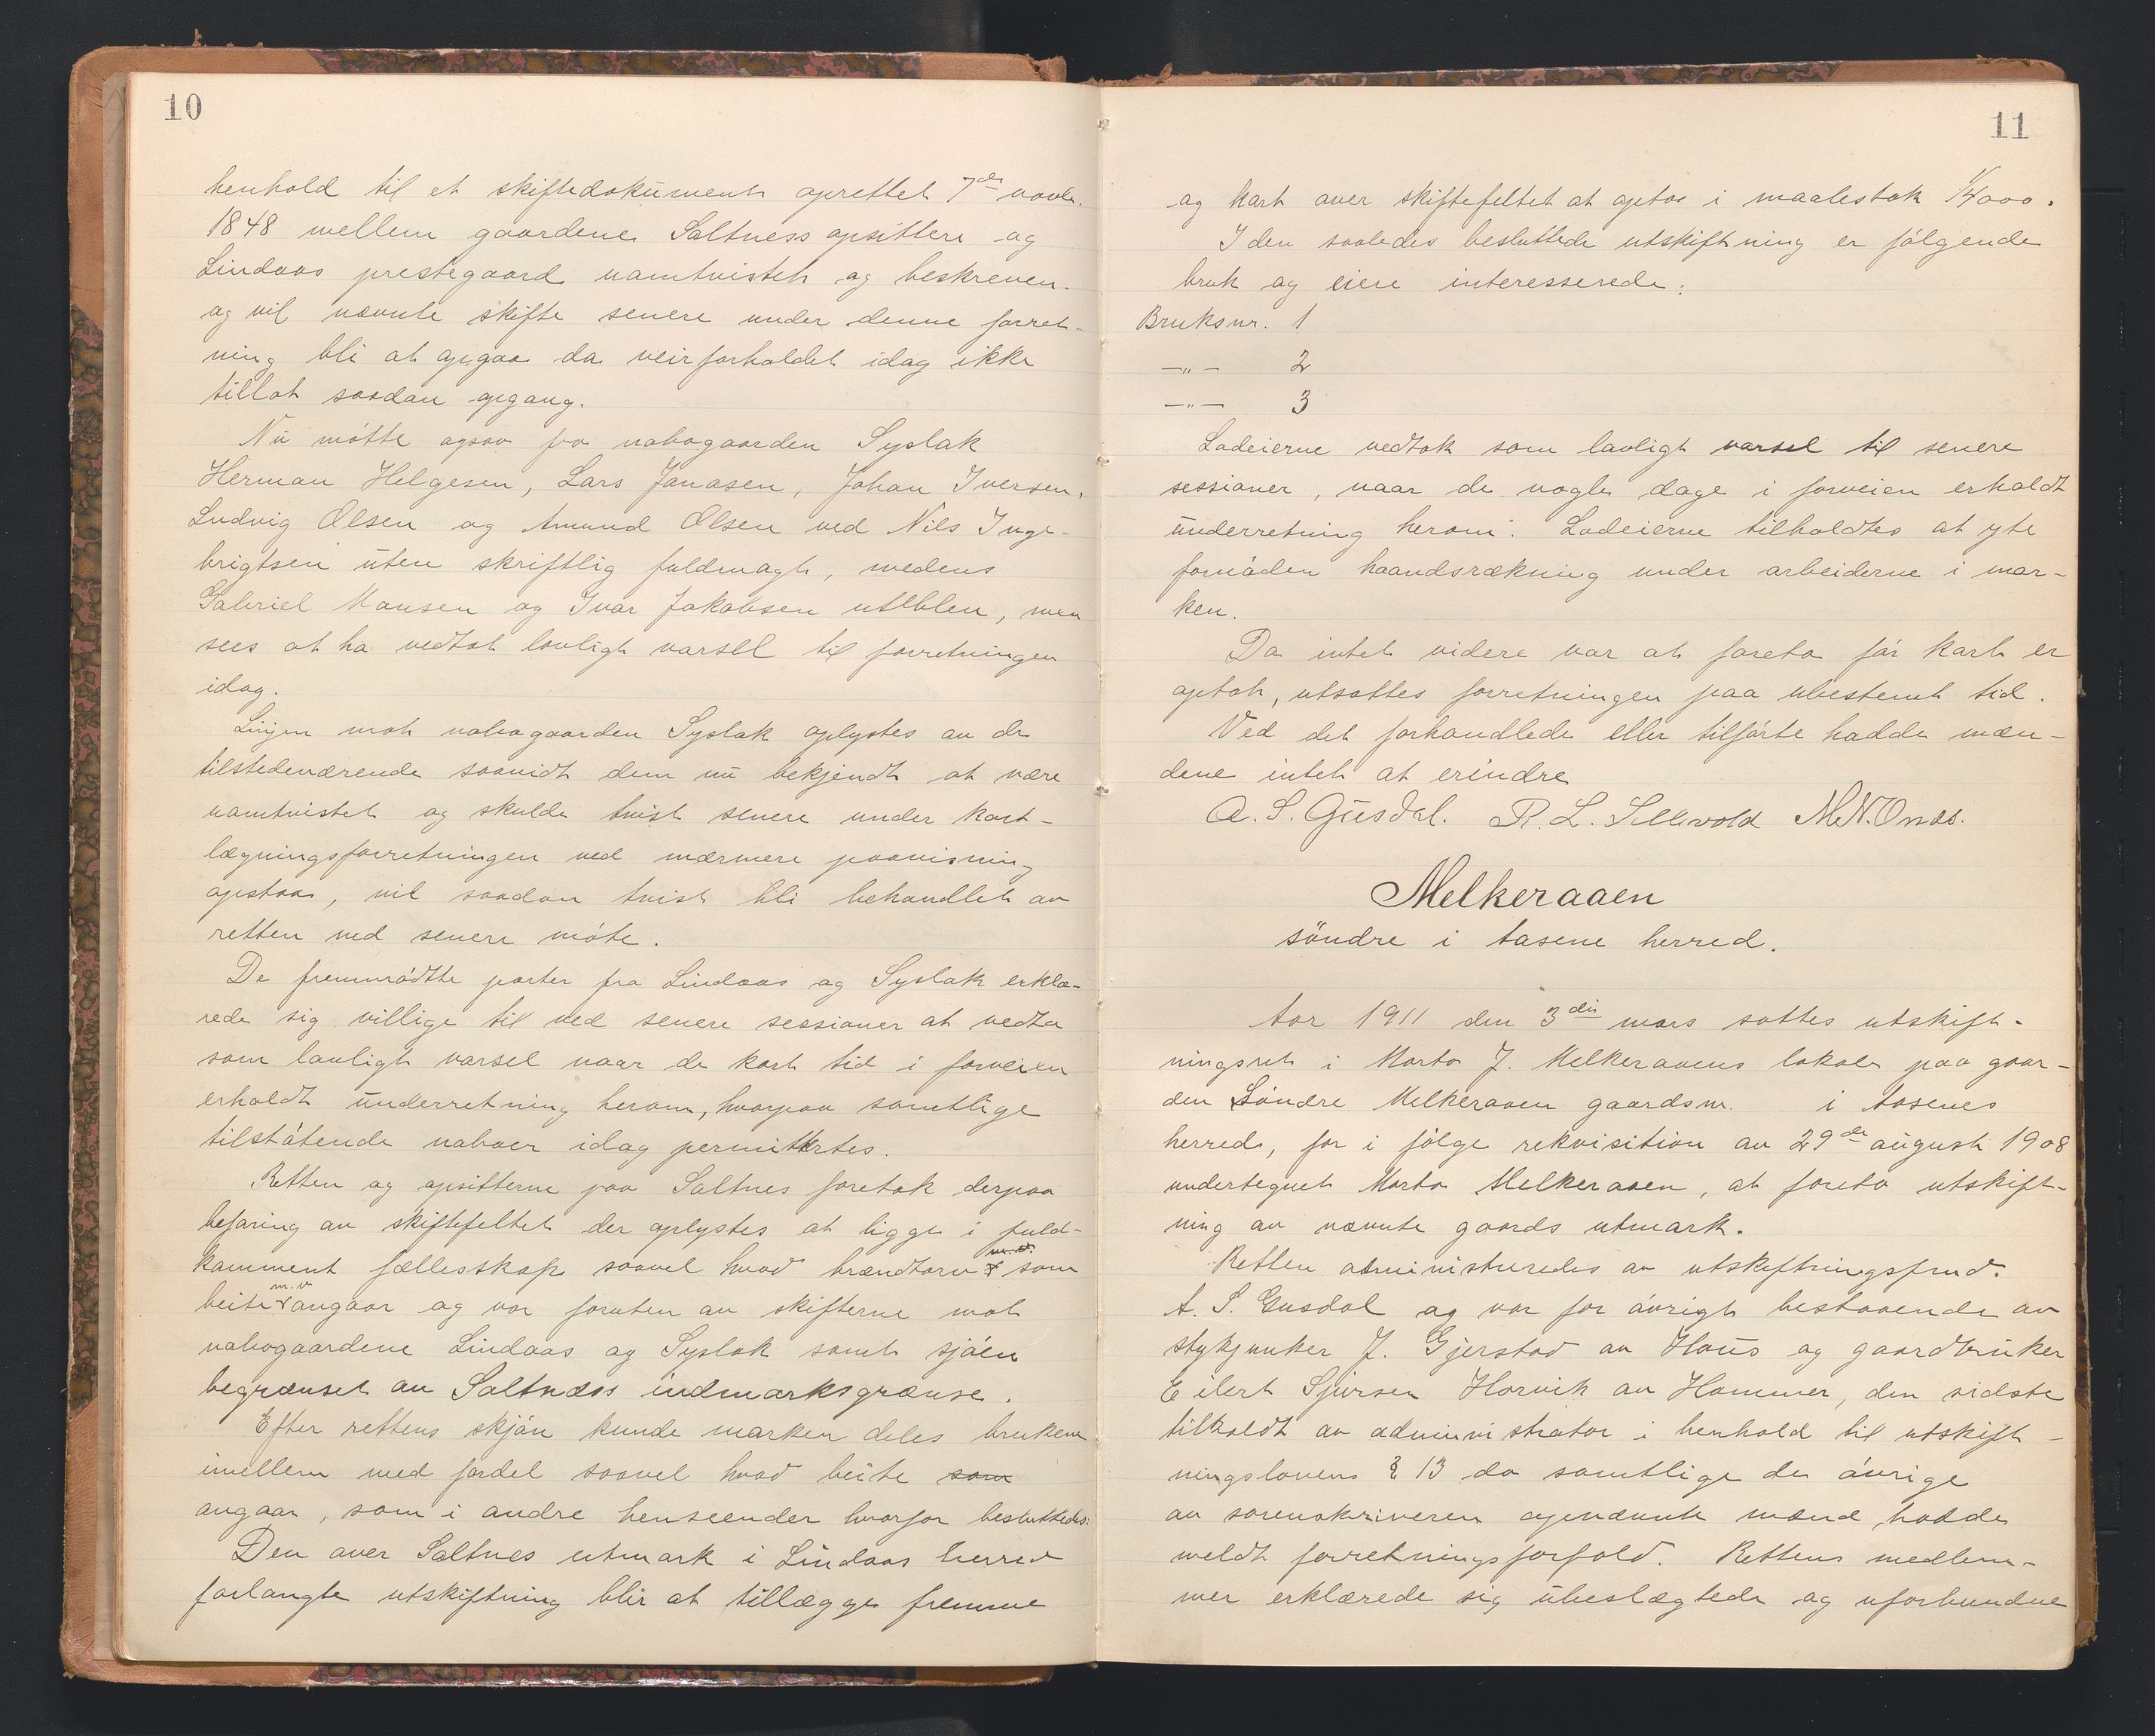 10
henhold til et skiftedokument oprettet 7de novbr.
1848 mellem gaardene Saltness opsittere og
Lindaas prestegaard uamtvistet og beskreven.
og vil nævnte skifte senere under denne forret-
ning bli at opgaa da veirforholdet idag ikke
tillot saadan opgang.
Nu møtte ogsaa fra nabogaarden Syslak
Herman Helgesen, Lars Jonasen, Johan Iversen,
Ludvig Olsen og Amund Olsen ved Nils Inge-
brigtsen uten skriftlig fuldmagt, medens
Gabriel Monsen og Ivar Jakobsen uteblev, men
sees at ha vedtat lovligt varsel til forretningen
idag.
Linjen mot nabogaarden Syslak oplystes av de
tilstedeværende saavidt dem nu bekjendt at være
uamtvistet og skulde tvist senere under kart-
lægningsforretningen ved nærmere paavisning
opstaa, vil saadan tvist bli behandlet av
retten ved senere møte.
De fremmødtte parter fra Lindaas og Syslak erklæ-
rede sig villige til ved senere sessioner at vedta
som lovligt varsel naar de kort tid i forveien
erholdt underretning herom, hvorpaa samtlige
tilstøtende naboer idag permittertes.
Retten og opsitterne paa Saltnes foretok derpaa
befaring av skiftefeltet der oplystes at ligge i fuld-
komment fællesskap saavel hvad brændtorv m.v. som
beite m.v. angaar og var foruten av skifterne mot
nabogaardene Lindaas og Syslak samt sjøen
begrænset av Saltnæss indmarksgrænse.
Efter rettens skjøn kunde marken deles brukene
imellem med fordel saavel hvad beite som
angaar, som i andre henseender hvorfor besluttedes:
Den over Saltnes utmark i Lindaas herred
forlangte utskiftning blir at tillægge fremme
11
og kart over skiftefeltet at optas i maalestok 1/4000.
I den saaledes besluttede utskiftning er følgende
bruk og eiere interesserede:
Bruksnr. 1
—"— 2
—"— 3
Lodeierne vedtok som lovligt varsel til senere
sessioner, naar de nogle dage i forveien erholdt
underretning herom. Lodeierne tilholdtes at yte
fornøden haandsrækning under arbeiderne i mar-
ken.
Da intet videre var at foreta før kart er
optat, utsattes forretningen paa ubestemt tid.
Ved det forhandlede eller tilførte hadde mæn-
dene intet at erindre
A. S. Gusdal. R. L. Sellevold M.N. Onæs.
Melkeraaen
søndre i Aasene herred.
Aar 1911 den 3die mars sattes utskift-
ningsret i Marta J. Melkeraaens lokale paa gaar-
den Søndre Melkeraaen gaardsnr. i Aasenes
herred, for i følge rekvisition av 29de august 1908
undertegnet Marta Melkeraaen, at foreta utskift-
ning av nævnte gaards utmark.
Retten administreredes av utskiftningsfmd.
A. S. Gusdal og var for øvrigt bestaaende av
stykjunker J. Gjerstad av Haus og gaardbruker
Eilert Sjursen Horvik av Hammer, den sidste
tilkaldt av administrator i henhold til utskift-
ningslovens § 13 da samtlige de øvrige
av sorenskriveren opnævnte mænd hadde
meldt forretningsforfald. Rettens medlem-
mer erklærede sig ubeslægtede og uforbundne